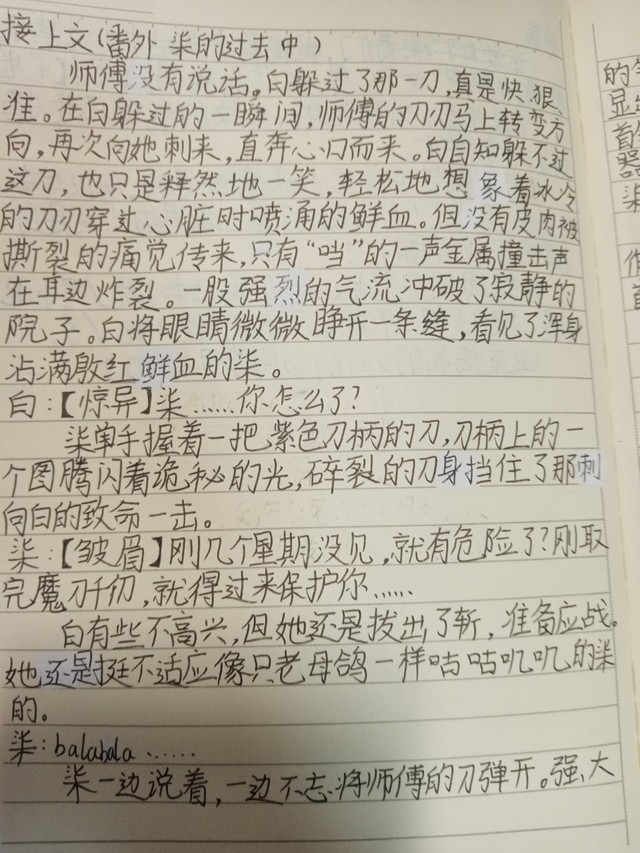 接上文(番外 柒的过去中)
师傅没有说话。白躲过了那一刀,真是快、狠、
准。在白躲过的一瞬间,师傅的刀刃马上转变方
向,再次向她刺来,直奔心口而来。白自知躲不过
这刀,也只是释然地一笑,轻松地想象着冰冷
的刀刃穿过心脏时喷涌的鲜血。但没有皮肉被
撕裂的痛觉传来,只有“当”的一声金属撞击声
在耳边炸裂。一股强烈的气流冲破了寂静的
院子。白将眼睛微微睁开一条缝,看见了浑身
沾满殷红鲜血的柒。
白:【惊异】柒……你怎么了?
柒单手握着一把紫色刀柄的刀,刀柄上的一
个图腾闪着诡秘的光,碎裂的刀身挡住了那刺
向白的致命一击。
柒:【皱眉】刚几个星期没见,就有危险了?刚取
完魔刀千仞,就得过来保护你……
白有些不高兴,但她还是拔出了斩,准备应战。
她还是挺不适应像只老母鸽一样咕咕叽叽的柒
的。
柒:balabala……
柒一边说着,一边不忘将师傅的刀弹开。强大
的
显
首
器
柒
作